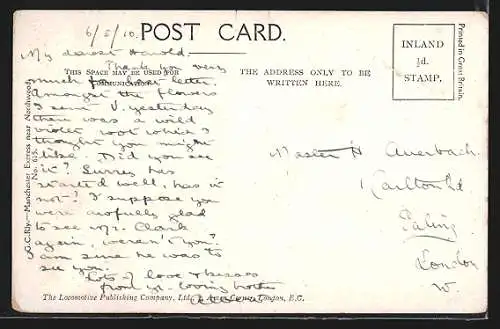 6/5/10.
POST CARD.
My dearest Harold.
Thank you very
much for dear letter.
THIS SPACE MAY BE USED FOR
COMMUNICATION.
Amongst the flowers
I sent V. yesterday
there was a wild
violet root which I
thought you might
like. Did you see
it? Surrey has
started well, has it
not? I suppose you
were awfully glad
to see Mr. Clark
again, weren't you?
I am sure he was to
see you.
Lots of love & kisses
from yr. loving mother
THE ADDRESS ONLY TO BE
WRITTEN HERE.
INLAND
½d.
STAMP.
Printed in Great Britain.
Master H Auerbach
Carlton Rd
Ealing
London
W.
G.C. Rly.—Manchester Express near Northwood.
No. 615.
The Locomotive Publishing Company, Ltd., 3, Amen Corner, London, E.C.